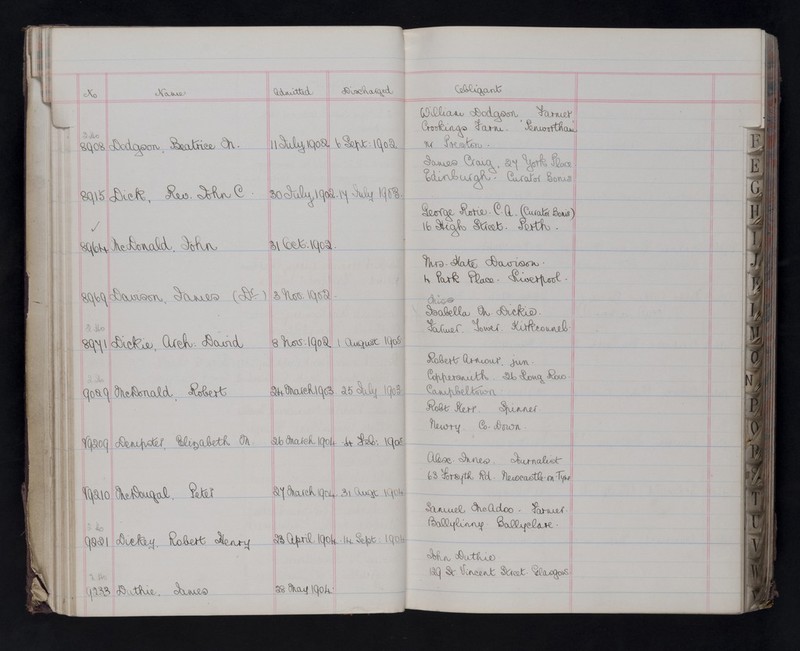 No Name Admitted Discharged Obligant
William Dodgson, Farmer
Crookings Farm. Penwortham
nr Preston.
8908 Dodgson, Beatrice M. 11 July 1902 6 Sept. 1902
James Craig, 27 York Place
Edinburgh. Curator Bonis
8915 Dick, Rev. John C. 30 July 1902 14 July 1908
George Rorie. C.A. (Curator Bonis)
16 High Street. Perth.
8964 McDonald, John 31 Oct. 1902.
Mrs. Kate Davison.
4 Park Place. Liverpool.
8969 Davison, James (Dr.) 3 Nov. 1902.
Isabella M. Dickie.
Farmer. Tower. Kirkconnel.
8971 Dickie, Arch. David 8 Nov. 1902 1 August 1905
Robert Armour, jun.
Coppersmith. 26 Long Row
Campbeltown
9029 McDonald, Robert 24 March 1903 25 July 1903
Robt Kerr. Spinner
Newry. Co. Down
9209 Dempster, Elizabeth M. 26 March 1904 4 Feb. 1905
Alex. Innes. Journalist
63 Forsyth Rd. Newcastle on Tyne
9210 McDougal, Peter 27 March 1904 31 Augt 1904
Samuel McAdoo. Farmer
Ballylinny Ballyclare.
9221 Dickey, Robert Henry 23 April 1904 14 Sept. 1904
John Duthie
129 St. Vincent Street. Glasgow
9233 Duthie, James 28 May 1904
F
E
G
H
I
J
K
L
M
O
N
P
Q
R
S
T
U
V
W